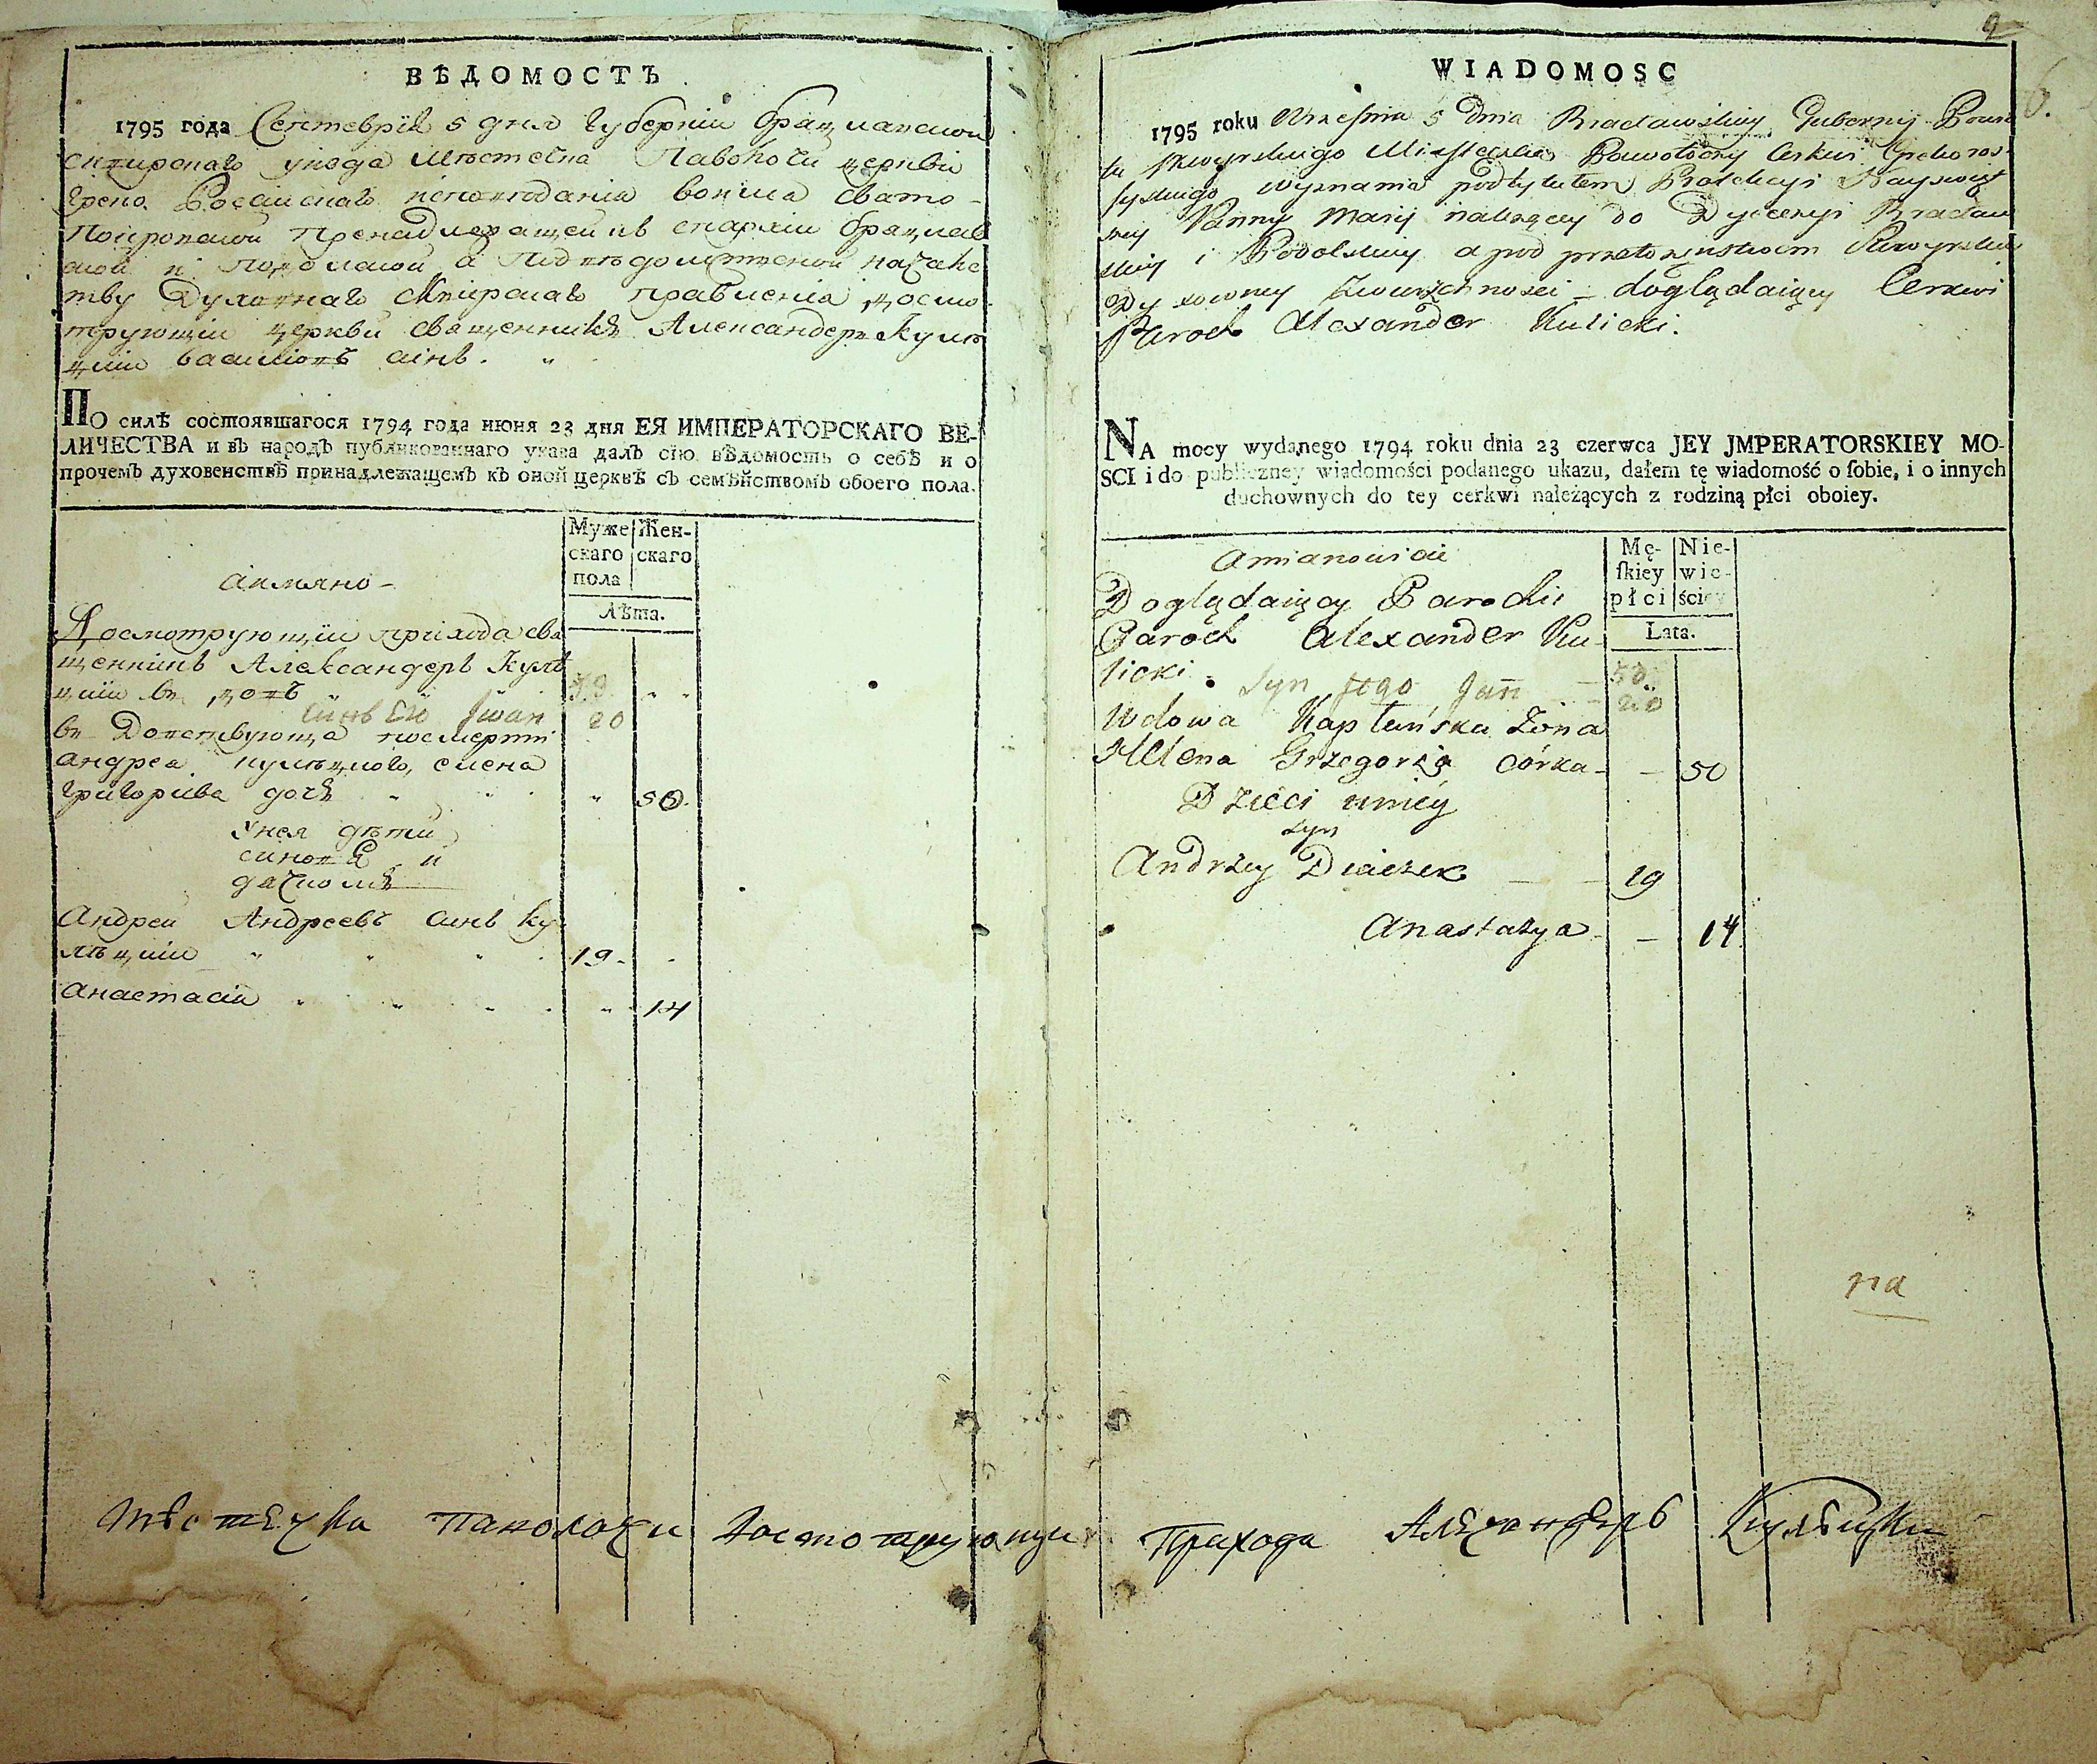 ВѢДОМОСТЬ
1795 года Септеврія 5 дня Губерніи Брацлавской
Сквирскаго уѣзда Мѣстечка Паволочи церкви
Греко Российскаго исповѣдания
Покровской принадлежащей въ епархіи Брацлав
ской и Подолской а
тву Духовнаго Сквирскаго правленія досмо
трующій церкви священникъ Александеръ Кулѣ
цкій синъ.
ПО силѣ состоявшагося 1794 года июня 23 дня ЕЯ ИМПЕРАТОРСКАГО ВЕ-
ЛИЧЕСТВА и въ народъ публикованнаго указа далъ сїю вѣдомость о себѣ и о
прочемъ духовенствѣ принадлежащемъ къ оной церквѣ съ семѣйствомъ обоего пола.
Муже Жен-
скаго скаго
пола
Лѣта.
аимяно -
Досмотрующій прихода свя
щенникъ Александеръ Кулѣ
цкій вдовъ
синъ Его Iwan 20
Вдовствующа посмерти
андрея кулѣцкого, елена
Григориева дочъ 50.
Унея дѣти
синовъ и
дачколъ
Андрей Андреевъ синъ Ку
лѣцкій 19.
Анастасія 14
9
6.
WIADOMOSC
1795 roku Wrzesnia 5 Dnia Bracławskiey Gubernij Powia
tu Skwyrskiego Miasteczka Pawołoczy Cerkwi Grekoros-
syiskiego wyznania podtytułem Protekcyi Nayswięt
szey Panny Maryi należącey do Dyecezyi Bracław
skiey i Podolskiey a pod przełożeństwem Skwyrskiey
Dychowney Zwierzchnosci - doglądaiący Cerkwi
Paroch Alexander Kulicki.
NA mocy wydanego 1794 roku dnia 23 czerwca JEY JMPERATORSKIEY MO-
SCI i do publiczney wiadomości podanego ukazu, dałem tę wiadomość o ſobie, i o innych
duchownych do tey cerkwi należących z rodziną płci oboiey.
Mę- Nie-
ſkiey wie-
płci ściey
Lata.
Amianowicie
Doglądaiący Parochii
Paroch Alexander Ku-
licki. 50
Syn jego Jan 20
Wdowa Kapłańska Żona
Helena Grzegorza córka - - 50
Dzieci uniey
Syn
Andrzey Diaczek - - 19
Anastazya - - 14
na
Мѣстечка Паволочи Досмотрующи Прихода Алеѯандеръ Кулѣцки